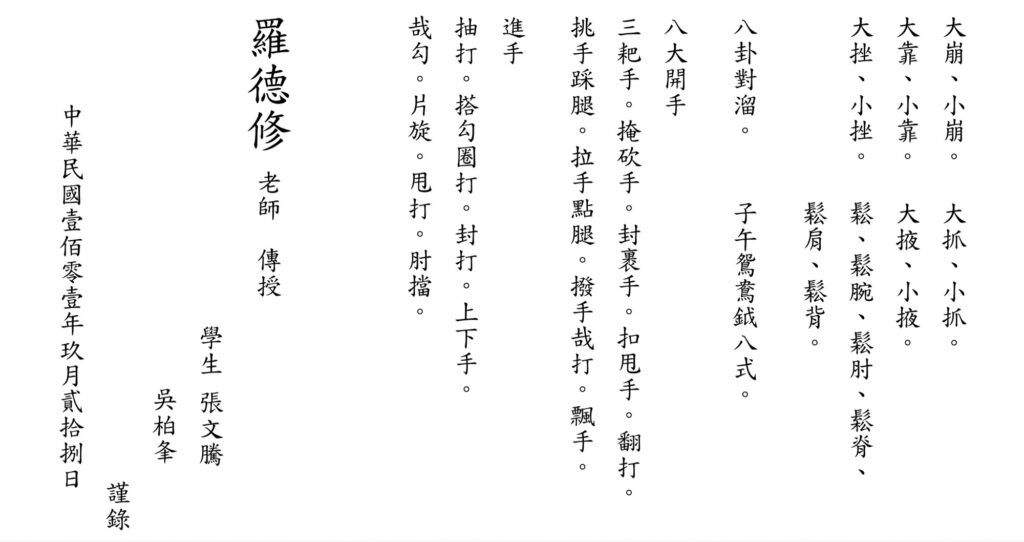 大崩、小崩。 大抓、小抓。
大靠、小靠。 大掖、小掖。
大挫、小挫。 鬆、鬆腕、鬆肘、鬆脊、
鬆肩、鬆背。
八卦對溜。 子午鴛鴦鉞八式。
八大開手
三耙手。掩砍手。封裹手。扣甩手。翻打。
挑手踩腿。拉手點腿。撥手哉打。飄手。
進手
抽打。搭勾圈打。封打。上下手。
哉勾。片旋。甩打。肘擋。
羅德修 老師 傳授
學生 張文騰
吳柏夆
謹錄
中華民國壹佰零壹年玖月貳拾捌日